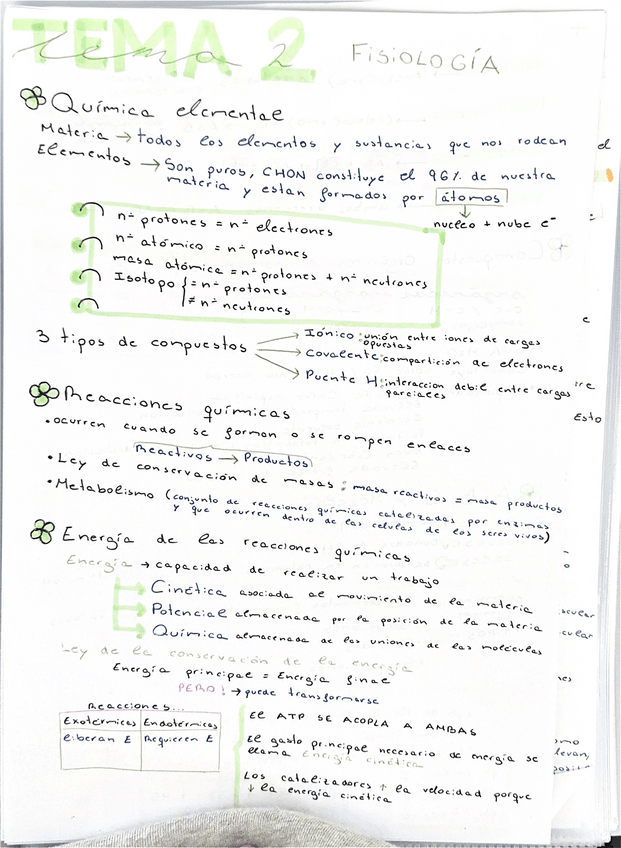 TEMA 2
tema 2 FISIOLOGÍA
Química elemental
Materia → todos los elementos y sustancias que nos rodean
Elementos → Son puros, CHON constituye el 96% de nuestra
materia y estan formados por átomos
nucleo + nube e⁻
nº protones = nº electrones
nº atómico = nº protones
masa atómica = nº protones + nº neutrones
Isotopo { = nº protones
≠ nº neutrones
3 tipos de compuestos
Iónico: unión entre iones de cargas
opuestas
Covalente: compartición de electrones
Puente H: interaccion debil entre cargas
parciales
Reacciones químicas
• ocurren cuando se forman o se rompen enlaces
Reactivos → Productos
• Ley de conservación de masas: masa reactivos = masa productos
• Metabolismo (conjunto de reacciones químicas catalizadas por enzimas
y que ocurren dentro de las celulas de los seres vivos)
Energía de las reacciones químicas
Energía → capacidad de realizar un trabajo
Cinética asociada al movimiento de la materia
Potencial almacenada por la posición de la materia
Química almacenada de las uniones de las moléculas
Ley de la conservación de la energía
Energía principal = Energía final
PERO! → puede transformarse
Reacciones...
Exotérmicas Endotérmicas
liberan E Requieren E
El ATP SE ACOPLA A AMBAS
El gasto principal necesario de energía se
llama energía cinética
Los catalizadores ↑ la velocidad porque
↓ la energía cinética
el
e
ire
Esto